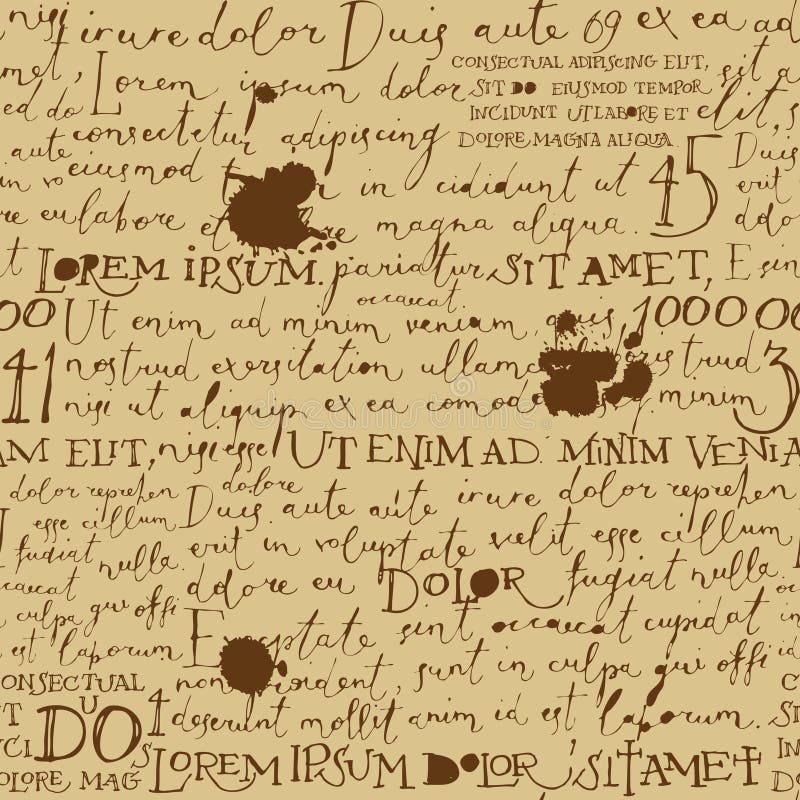 nisi irure dolor Duis aute 69 ex ea ad
met, Lorem ipsum dolor sit a
CONSECTUAL ADIPISCING ELIT,
SIT DO EIUSMOD TEMPOR
INCIDUNT UT LABORE ET
DOLORE MAGNA ALIQUA
sed do consectetur adipiscing elit, s
aute eiusmod in cididunt ut 45 Duis
in vo erit
re eu labore et magna aliqua. dolo
t LOREM IPSUM. pariatur SIT AMET, E sin
occaecat.
00 Ut enim ad minim veniam, quis 1000 00
41 nostrud exersitation ullamc strud 3
nisi ut aliquip ex ea comodo minim
AM ELIT, nisi esse UT ENIM AD MINIM VENIA
dolor reprehen dolore
esse cillum Duis aute aute irure dolor reprehen
fugiat nulla. erit in voluptate velit esse cillum
occaecat dolore eu DOLOR fugiat nulla.
n culpa qui offi E ptate sint occaecat cupidat in
id est laborum. non oident, sunt in culpa qui offi
CONSECTUAL
ET U DO 4 deserunt mollit anim id est laborum.
S LOREM IPSUM DOLOR SIT AMET
DOLORE MAG